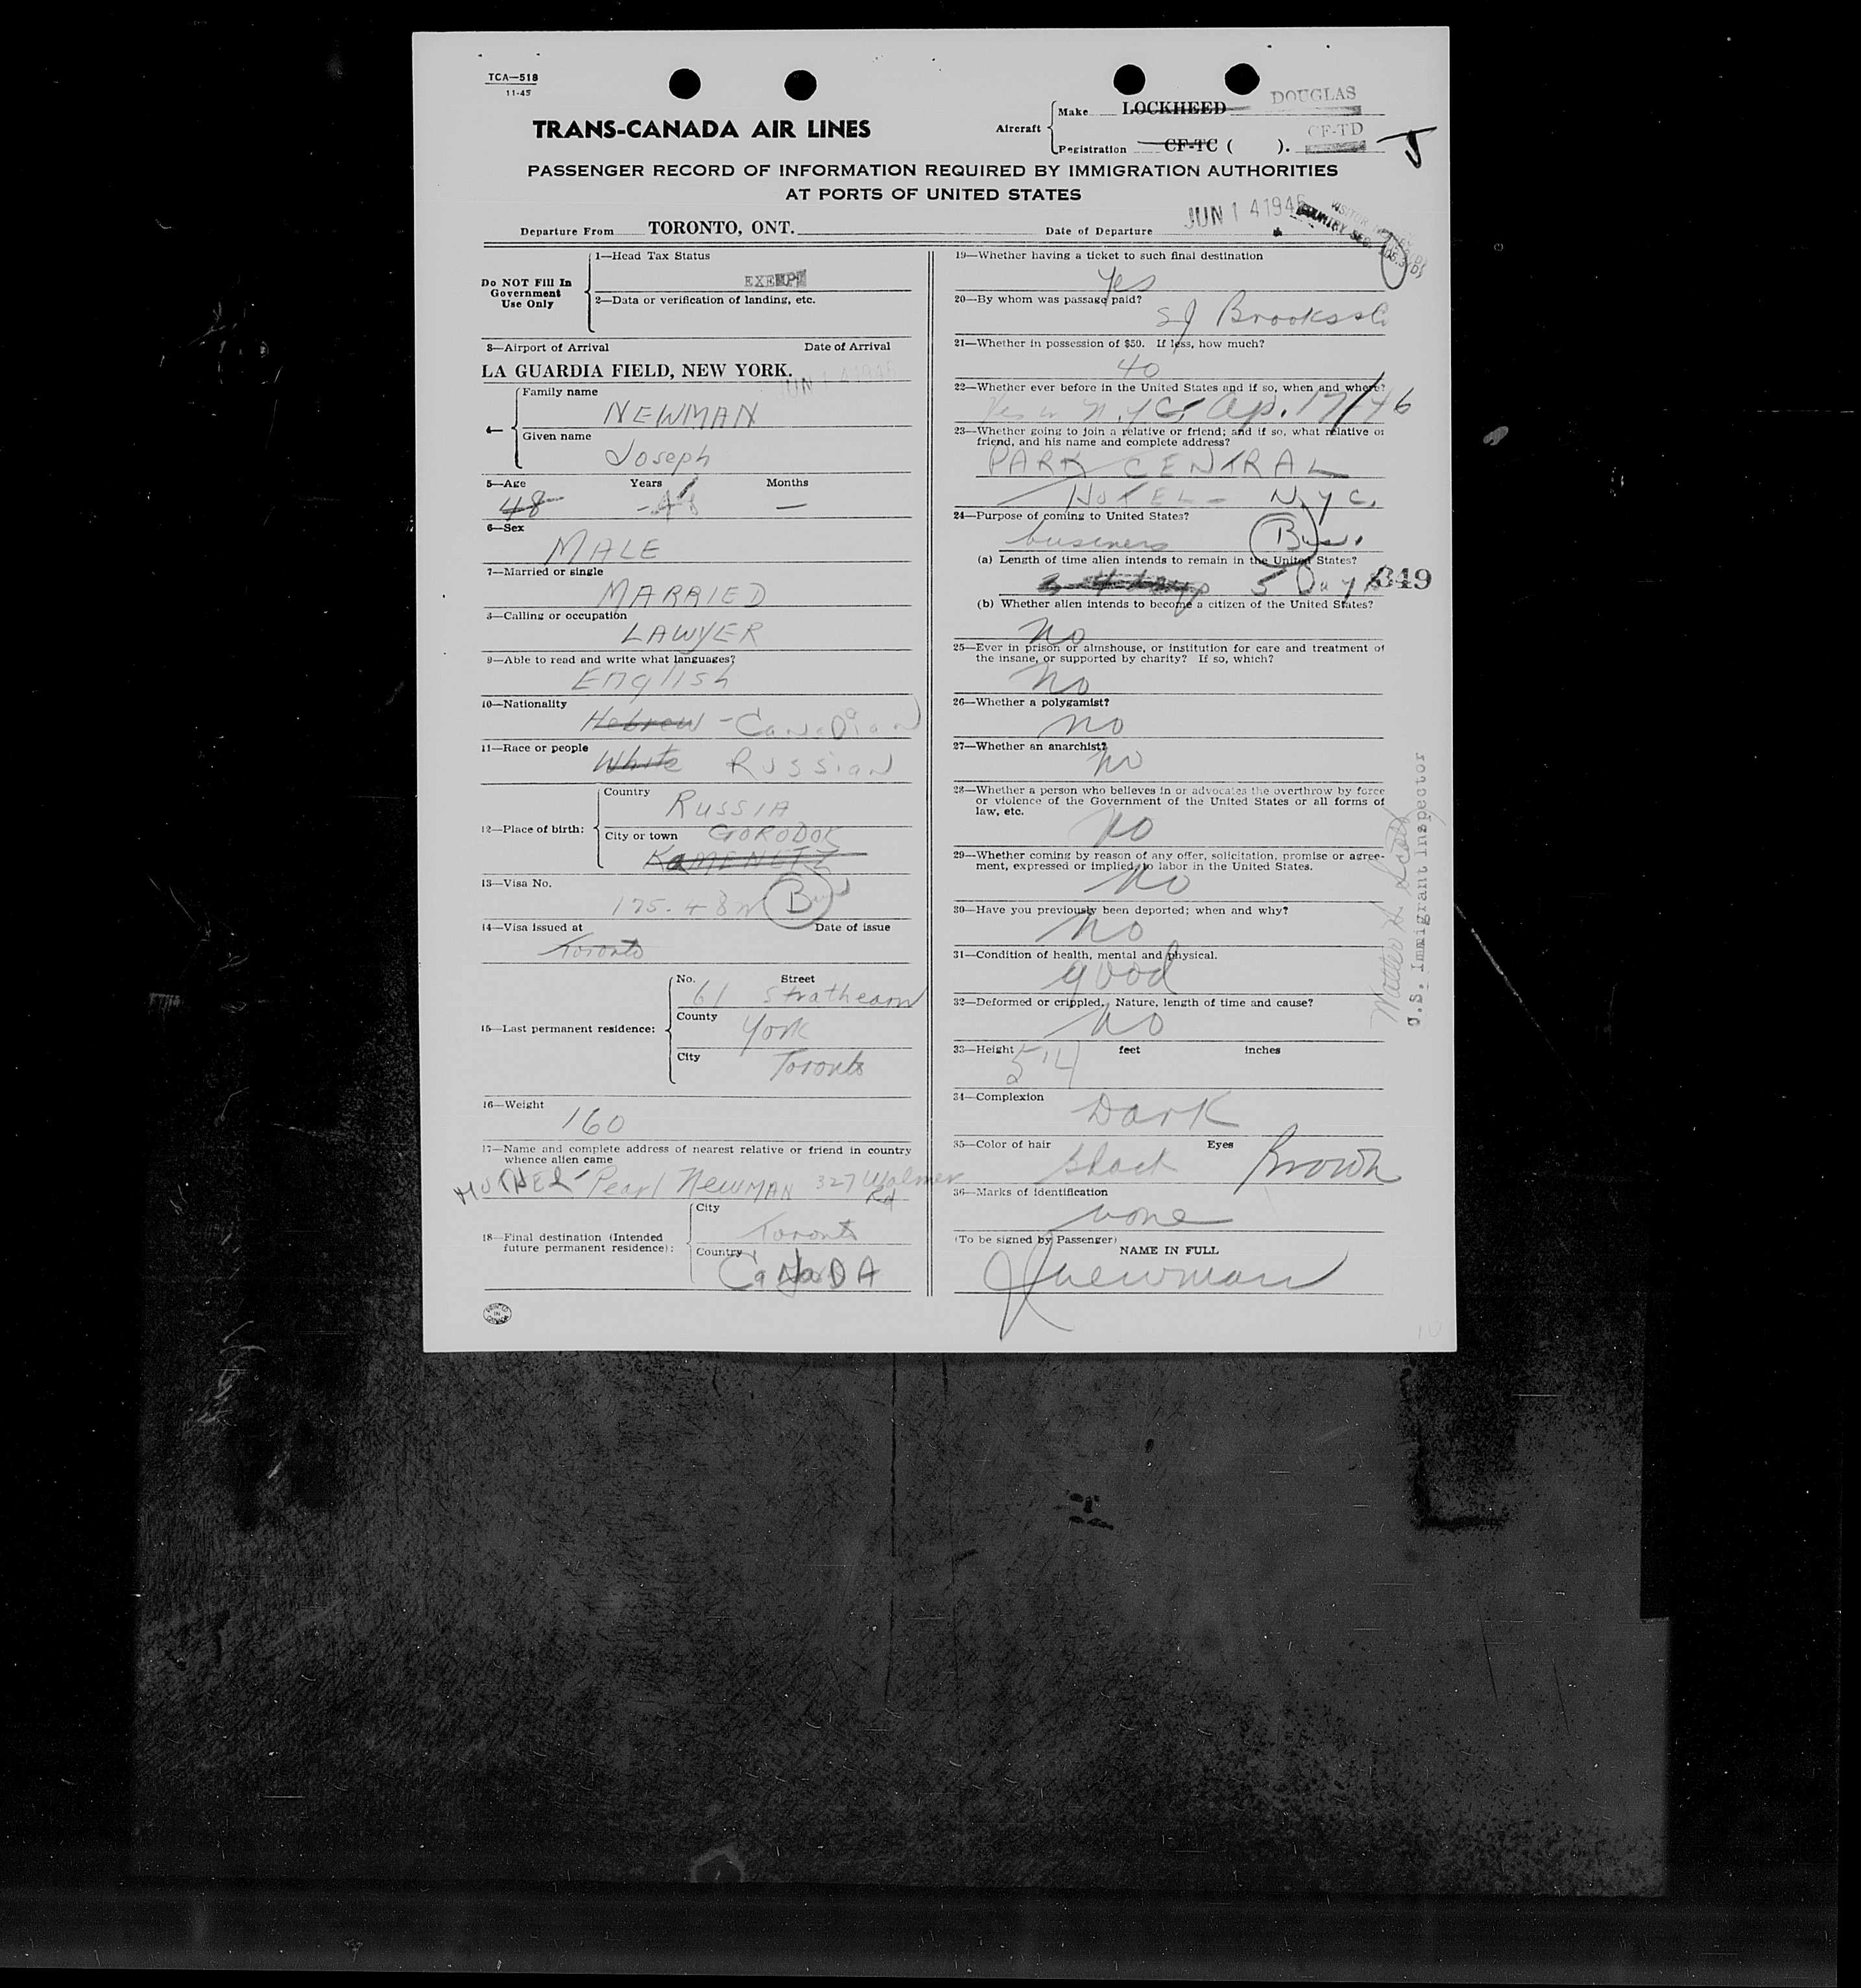 TCA—518
11-45
TRANS-CANADA AIR LINES
Aircraft
Make LOCKHEED DOUGLAS
Registration CF-TC ( ). CF-TD
J
PASSENGER RECORD OF INFORMATION REQUIRED BY IMMIGRATION AUTHORITIES
AT PORTS OF UNITED STATES
Departure From TORONTO, ONT. Date of Departure JUN 14 1946
Do NOT Fill In
Government
Use Only
1—Head Tax Status
EXEMPT
2—Data or verification of landing, etc.
3—Airport of Arrival Date of Arrival
LA GUARDIA FIELD, NEW YORK. JUN 14 1946
4—
Family name
NEWMAN
Given name
Joseph
5—Age Years Months
48 - 48 —
6—Sex
MALE
7—Married or single
MARRIED
8—Calling or occupation
LAWYER
9—Able to read and write what languages?
English
10—Nationality
Hebrew - Canadian
11—Race or people
White Russian
12—Place of birth:
Country
RUSSIA
City or town GORODOK
KAMENETZ
13—Visa No.
B
14—Visa issued at Date of issue
Toronto
15—Last permanent residence:
No. Street
61 Strathearn
County
York
City
Toronto
16—Weight
160
17—Name and complete address of nearest relative or friend in country
whence alien came
MOTHER - Pearl NEWMAN 327 Walmer
Rd
18—Final destination (Intended
future permanent residence):
City
Toronto
Country
CaNaDA
PRINTED
IN
CANADA
19—Whether having a ticket to such final destination
yes
20—By whom was passage paid?
SJ Brooks & Co
21—Whether in possession of $50. If less, how much?
40
22—Whether ever before in the United States and if so, when and where?
Yes in N.Y.C. Ap. 17/46
23—Whether going to join a relative or friend; and if so, what relative or
friend, and his name and complete address?
PARK CENTRAL
HOTEL - N.Y.C.
24—Purpose of coming to United States?
business Bus.
(a) Length of time alien intends to remain in the United States?
5 Days 349
(b) Whether alien intends to become a citizen of the United States?
no
25—Ever in prison or almshouse, or institution for care and treatment of
the insane, or supported by charity? If so, which?
no
26—Whether a polygamist?
no
27—Whether an anarchist?
no
28—Whether a person who believes in or advocates the overthrow by force
or violence of the Government of the United States or all forms of
law, etc.
no
29—Whether coming by reason of any offer, solicitation, promise or agree-
ment, expressed or implied, to labor in the United States.
no
30—Have you previously been deported; when and why?
no
31—Condition of health, mental and physical.
good
32—Deformed or crippled. Nature, length of time and cause?
no
33—Height feet inches
5'4
34—Complexion
Dark
35—Color of hair Eyes
black Brown
36—Marks of identification
none
(To be signed by Passenger)
NAME IN FULL
J Newman
U.S. Immigrant Inspector
10